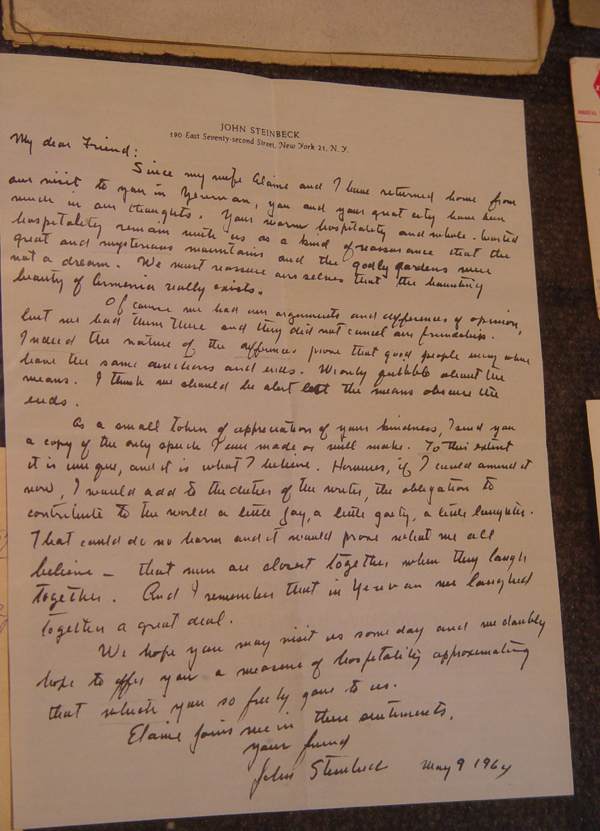 JOHN STEINBECK
190 East Seventy-second Street, New York 21, N. Y.
My dear Friend:
Since my wife Elaine and I have returned home from
our visit to you in Yerevan, you and your great city have been
much in our thoughts. Your warm hospitality and whole-hearted
hospitality remain with us as a kind of reassurance that the
great and mysterious mountains and the godly gardens were
not a dream. We must reassure ourselves that the haunting
beauty of Armenia really exists.
Of course we had our arguments and differences of opinion,
but we had them there and they did not cancel our friendship.
Indeed the nature of the differences prove that good people every where
have the same directions and ends. We only quibble about the
means. I think we should be alert lest the means obscure the
ends.
As a small token of appreciation of your kindness, I send you
a copy of the only speech I ever made or will make. To this extent
it is unique, and it is what I believe. However, if I could amend it
now, I would add to the duties of the writer, the obligation to
contribute to the world a little joy, a little gaiety, a little laughter.
That could do no harm and it would prove what we all
believe — that men are closest together when they laugh
together. And I remember that in Yerevan we laughed
together a great deal.
We hope you may visit us some day and we doubly
hope to offer you a measure of hospitality approximating
that which you so freely gave to us.
Elaine joins me in these sentiments.
your friend
John Steinbeck May 9 1964